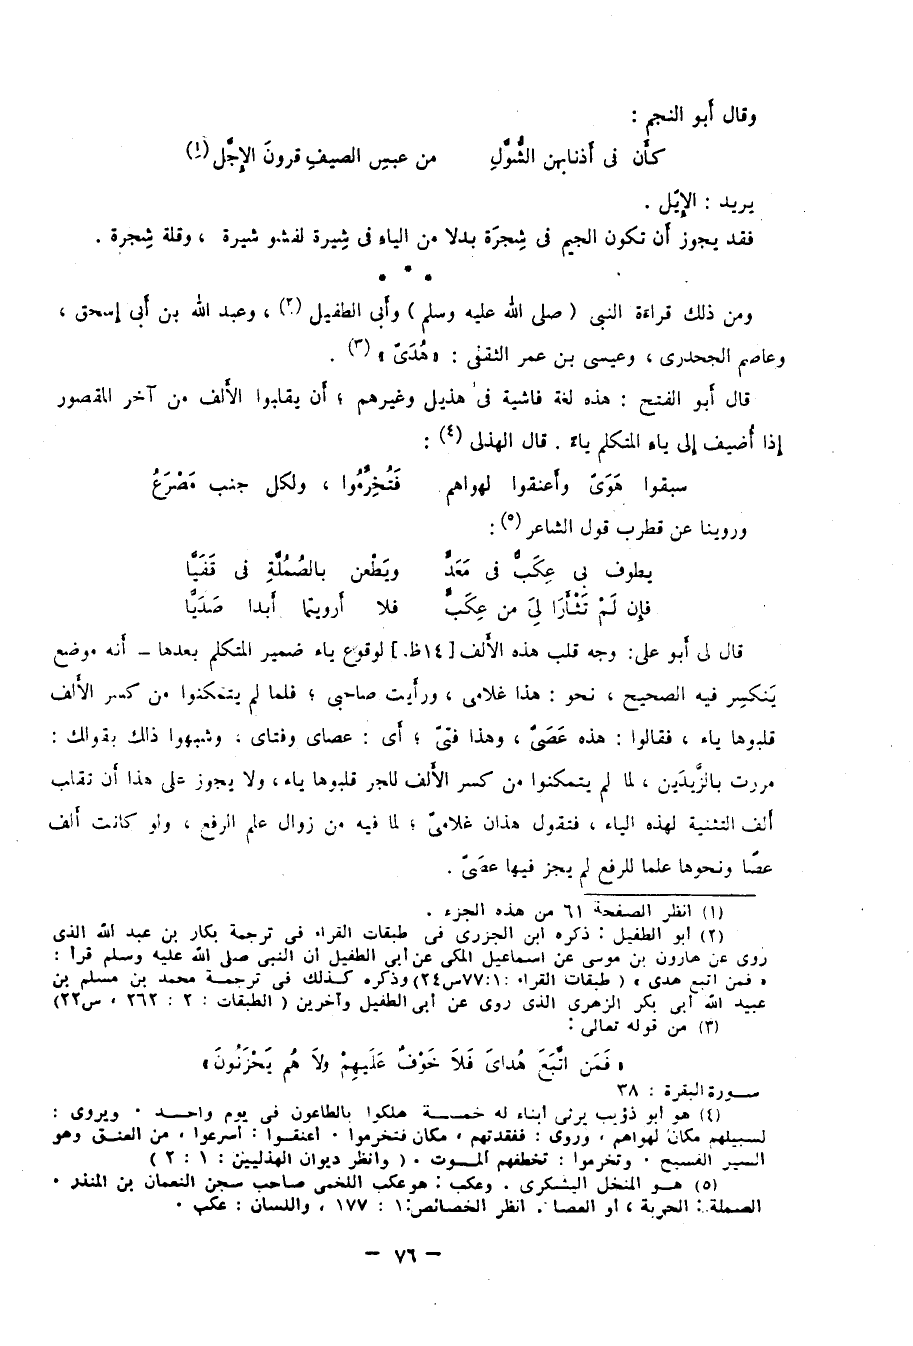 وقال أبو النجم :
كأن فى أذنابهن الشُّوَّلِ من عبسِ الصيفِ قرونَ الإجَّل (١)
يريد : الإيَّل .
فقد يجوز أن تكون الجيم فى شِجرَة بدلا من الياء فى شِيرة لفشو شيرة ، وقلة شِجرة .
* * *
ومن ذلك قراءة النبى ( صلى الله عليه وسلم ) وأبى الطفيل (٢) ، وعبد الله بن أبى إسحق ،
وعاصم الجحدرى ، وعيسى بن عمر الثقفى : « هُدَىَّ » (٣) .
قال أبو الفتح : هذه لغة فاشية فى هذيل وغيرهم ؛ أن يقلبوا الألف من آخر المقصور
إذا أُضيف إلى ياء المتكلم ياء . قال الهذلى (٤) :
سبقوا هَوَىَّ وأعنقوا لهواهم فَتُخِرِّمُوا ، ولكل جنب مَصْرَعُ
وروينا عن قطرب قول الشاعر (٥) :
يطوف بى عِكَبٌّ فى مَعَدٍّ ويَطْعن بالصُّمُلَّةِ فى قَفَيَّا
فإن لَمْ تَثْأَرَا لِىَ من عِكَبٍّ فلا أرويتما أبدا صَدَيَّا
قال لى أبو على: وجه قلب هذه الألف [١٤ظ.] لوقوع ياء ضمير المتكلم بعدها – أنه موضع
يَنكسِر فيه الصحيح ، نحو : هذا غلامى ، ورأيت صاحبى ؛ فلما لم يتمكنوا من كسر الألف
قلبوها ياء ، فقالوا : هذه عَصَىَّ ، وهذا فتىَّ ؛ أى : عصاى وفتاى ، وشبهوا ذلك بقولك :
مررت بالزَّيدَين ، لما لم يتمكنوا من كسر الألف للجر قلبوها ياء ، ولا يجوز على هذا أن تقلب
ألف التثنية لهذه الياء ، فتقول هذان غلامىَّ ؛ لما فيه من زوال علم الرفع ، ولو كانت ألف
عصًا ونحوها علما للرفع لم يجز فيها عصَىَّ .
(١) انظر الصفحة ٦١ من هذه الجزء .
(٢) أبو الطفيل : ذكره ابن الجزرى فى طبقات القراء فى ترجمة بكار بن عبد الله الذى
روى عن هارون بن موسى عن اسماعيل المكى عن أبى الطفيل أن النبى صلى الله عليه وسلم قرأ :
« فمن اتبع هدى » ( طبقات القراء ١: ٧٧س٢٤) وذكره كذلك فى ترجمة محمد بن مسلم بن
عبيد الله أبى بكر الزهرى الذى روى عن أبى الطفيل وآخرين ( الطبقات : ٢ : ٢٦٢ ، س٢٢)
(٣) من قوله تعالى :
« فَمَن اتَّبَعَ هُداىَ فَلاَ خَوْفٌ عَلَيهِمْ ولاَ هُم يَحْزَنُونَ »
سورة البقرة : ٣٨
(٤) هو أبو ذؤيب يرثى أبناء له خمسة هلكوا بالطاعون فى يوم واحد . ويروى :
لسبيلهم مكان لهواهم ، وروى : ففقدتهم ، مكان فتخرموا . أعنقوا : أسرعوا ، من العنق وهو
السير الفسيح . وتخرموا : تخطفهم الموت . ( وانظر ديوان الهذليين : ١ : ٢ )
(٥) هو المنخل اليشكرى . وعكب : هو عكب اللخمى صاحب سجن النعمان بن المنذر .
الصملة : الحربة ، أو العصا . انظر الخصائص: ١ : ١٧٧ ، واللسان : عكب .
– ٧٦ –